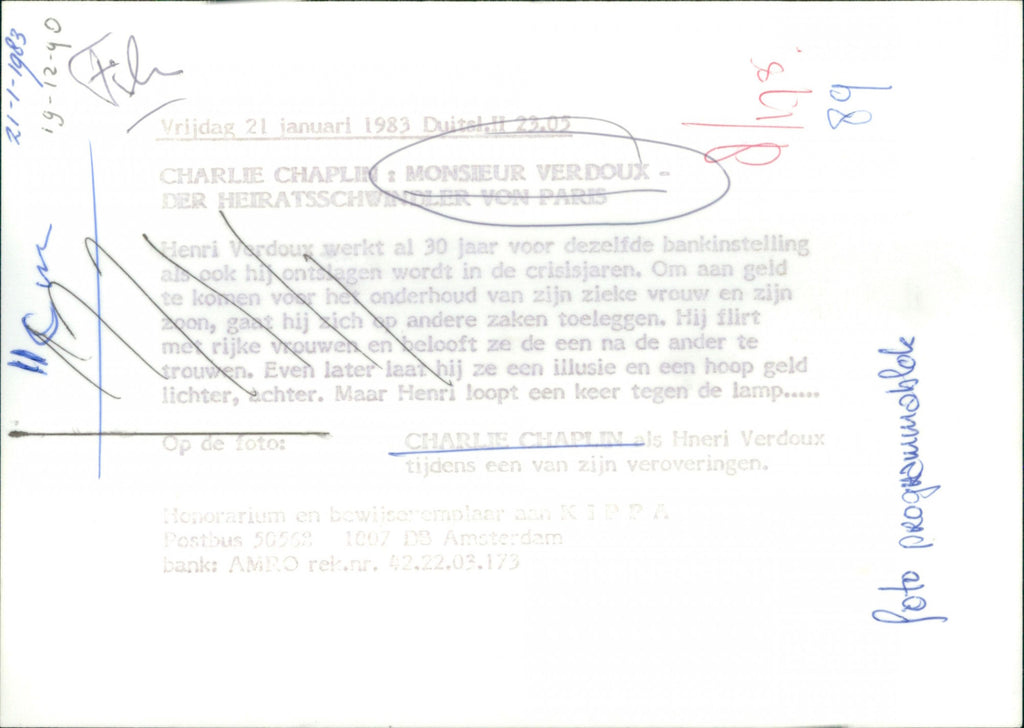 21-1-1983
19-12-90
Film
Vrijdag 21 januari 1983 Duitsl.II 23.05
CHARLIE CHAPLIN : MONSIEUR VERDOUX -
DER HEIRATSSCHWINDLER VON PARIS
Henri Verdoux werkt al 30 jaar voor dezelfde bankinstelling
als ook hij ontslagen wordt in de crisisjaren. Om aan geld
te komen voor het onderhoud van zijn zieke vrouw en zijn
zoon, gaat hij zich op andere zaken toeleggen. Hij flirt
met rijke vrouwen en belooft ze de een na de ander te
trouwen. Even later laat hij ze een illusie en een hoop geld
lichter, achter. Maar Henri loopt een keer tegen de lamp.....
Op de foto: CHARLIE CHAPLIN als Hneri Verdoux
tijdens een van zijn veroveringen.
Honorarium en bewijsexemplaar aan K I P P A
Postbus 50568 1007 DB Amsterdam
bank: AMRO rek.nr. 42.22.03.173
89
foto programmablok